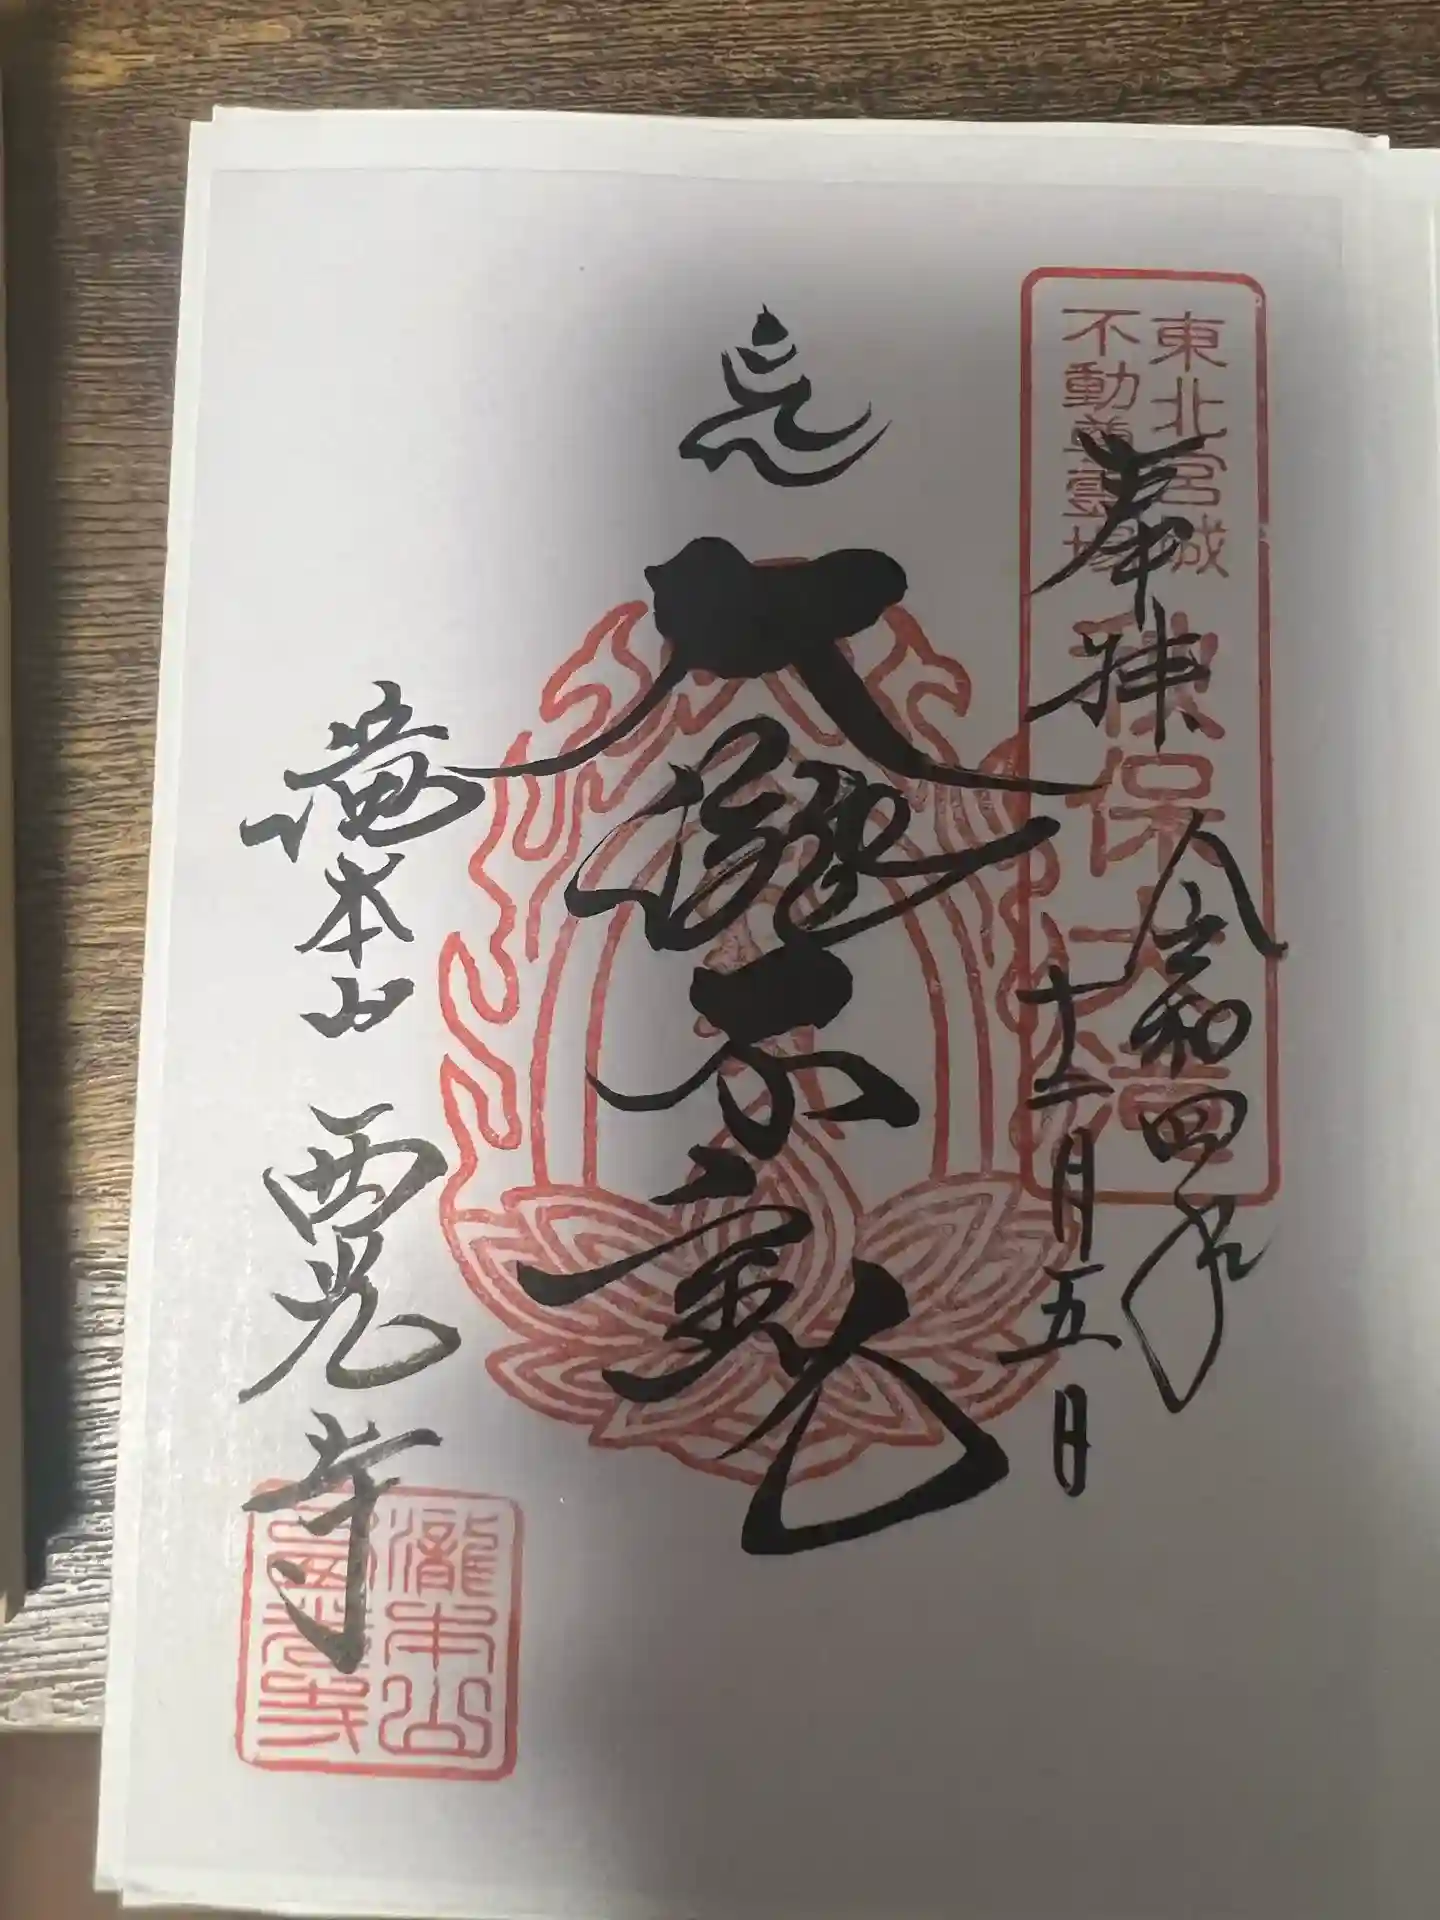 東北宮城
不動尊靈場
秋保大瀧
奉拝
令和四年
十二月五日
大瀧不動
瀧本山 西光寺
瀧本山
西光寺